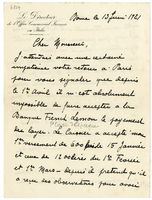 Le Directeur
de l'Office Commercial Français
en Italie
Rome le 13 Juin 1921
Cher Monsieur,
J'attendais avec une certaine
impatience votre retour à Paris
pour vous signaler que depuis
le 1er Avril il m'est absolument
impossible de faire accepter à la
Banque French Lemon le payement
du loyer. Le caissier a accepté mon
1er versement de 600 le 15 Janvier
et une de 12 du 1er Février
et 1er Mars depuis il prétend qu'il a
reçu des observations pour avoir